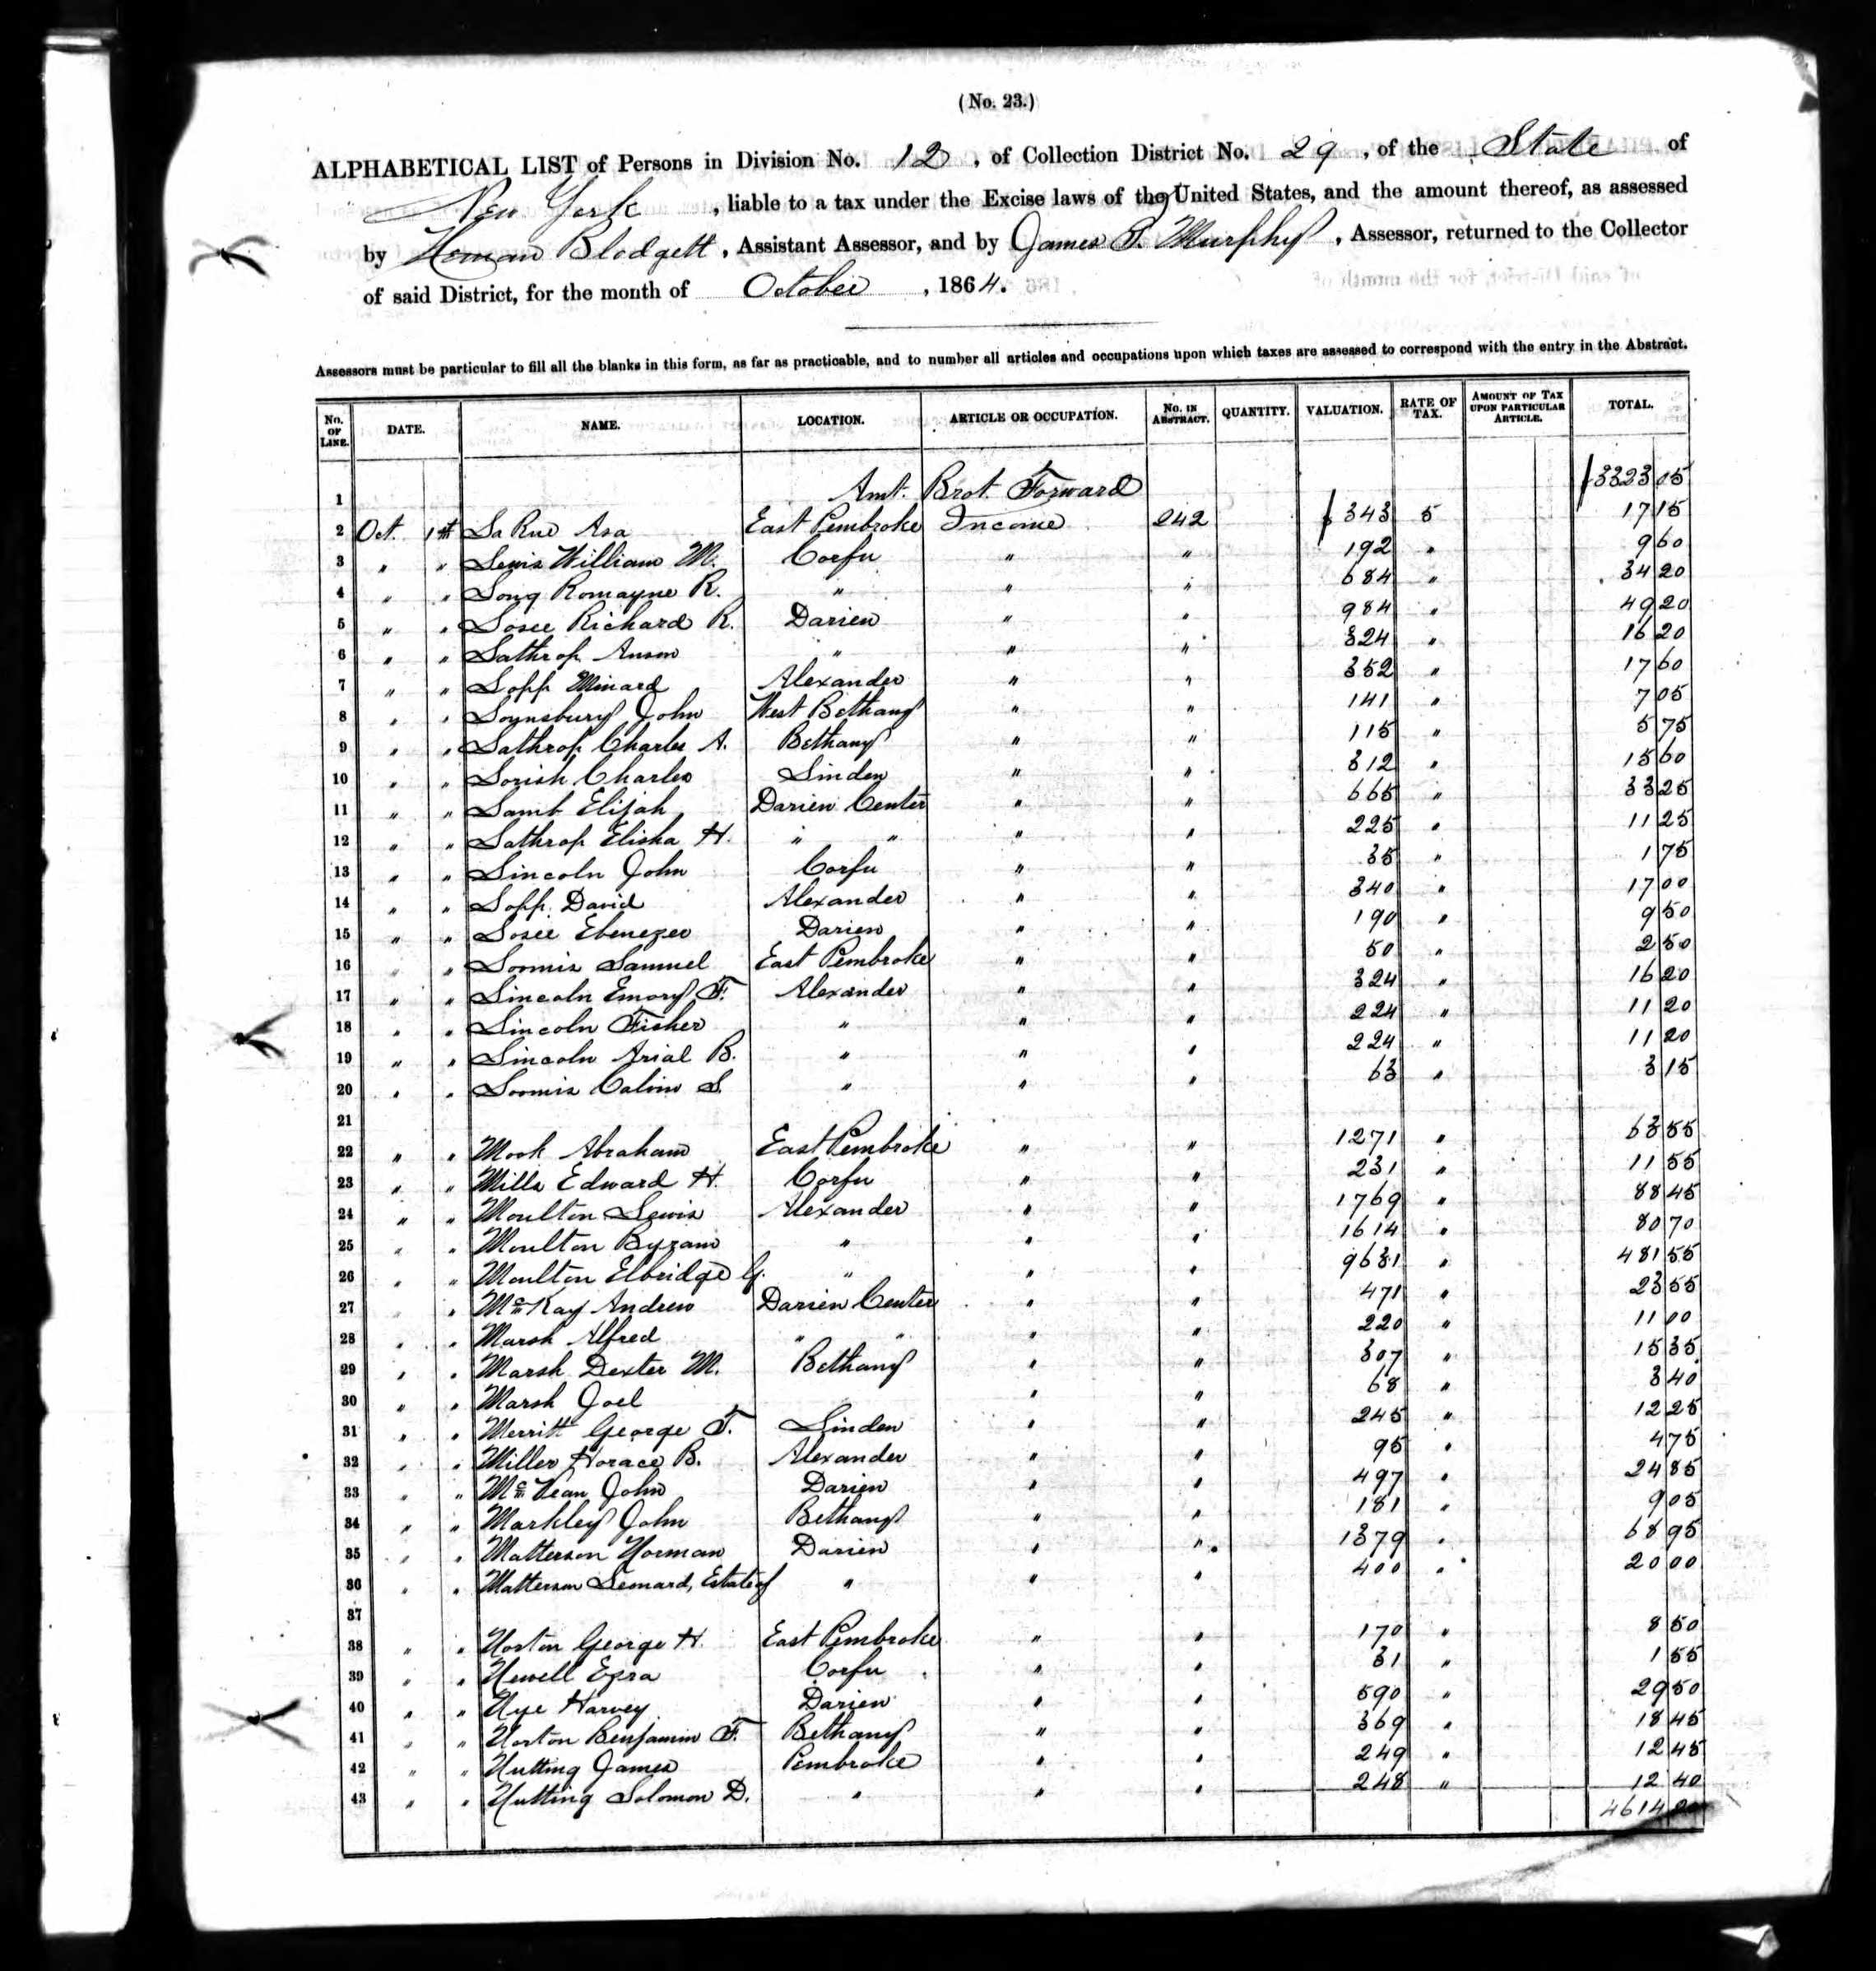 (No. 23.)
ALPHABETICAL LIST of Persons in Division No. 12, of Collection District No. 29, of the State of
New York, liable to a tax under the Excise laws of the United States, and the amount thereof, as assessed
by Heman Blodgett, Assistant Assessor, and by James P. Murphy, Assessor, returned to the Collector
of said District, for the month of October, 1864.
Assessors must be particular to fill all the blanks in this form, as far as practicable, and to number all articles and occupations upon which taxes are assessed to correspond with the entry in the Abstract.
No. OF LINE. DATE. NAME. LOCATION. ARTICLE OR OCCUPATION. No. IN ABSTRACT. QUANTITY. VALUATION. RATE OF TAX. AMOUNT OF TAX UPON PARTICULAR ARTICLE. TOTAL.
1 Amt. Brot. Forward $3323 05
2 Oct. 1st La Rue Asa East Pembroke Income 242 $343 5 17 15
3 " " Lewis William M. Corfu " " 192 " 9 60
4 " " Long Romayne R. " " " 684 " 34 20
5 " " Losee Richard R. Darien " " 984 " 49 20
6 " " Lathrop Anson " " " 324 " 16 20
7 " " Lopp Minard Alexander " " 352 " 17 60
8 " " Lounsbury John West Bethany " " 141 " 7 05
9 " " Lathrop Charles A. Bethany " " 115 " 5 75
10 " " Lorish Charles Linden " " 312 " 15 60
11 " " Lamb Elijah Darien Center " " 665 " 33 25
12 " " Lathrop Elisha H. " " " " 225 " 11 25
13 " " Lincoln John Corfu " " 35 " 1 75
14 " " Lopp David Alexander " " 340 " 17 00
15 " " Losee Ebenezer Darien " " 190 " 9 50
16 " " Loomis Samuel East Pembroke " " 50 " 2 50
17 " " Lincoln Emory F. Alexander " " 324 " 16 20
18 " " Lincoln Fisher " " " 224 " 11 20
19 " " Lincoln Arial B. " " " 224 " 11 20
20 " " Loomis Calvin S. " " " 63 " 3 15
21
22 " " Mook Abraham East Pembroke " " 1271 " 63 55
23 " " Mills Edward H. Corfu " " 231 " 11 55
24 " " Moulton Lewis Alexander " " 1769 " 88 45
25 " " Moulton Byram " " " 1614 " 80 70
26 " " Moulton Elbridge G. " " " 9631 " 481 55
27 " " McKay Andrew Darien Center " " 471 " 23 55
28 " " Marsh Alfred " " " " 220 " 11 00
29 " " Marsh Dexter M. Bethany " " 307 " 15 35
30 " " Marsh Joel " " 68 " 3 40
31 " " Merritt George T. Linden " " 245 " 12 25
32 " " Miller Horace B. Alexander " " 95 " 4 75
33 " " McVean John Darien " " 497 " 24 85
34 " " Markley John Bethany " " 181 " 9 05
35 " " Matterson Norman Darien " " 1379 " 68 95
36 " " Matterson Leonard, Estate of " " " 400 " 20 00
37
38 " " Norton George H. East Pembroke " " 170 " 8 50
39 " " Newell Ezra Corfu " " 31 " 1 55
40 " " Nye Harvey Darien " " 590 " 29 50
41 " " Norton Benjamin F. Bethany " " 369 " 18 45
42 " " Nutting James Pembroke " " 249 " 12 45
43 " " Nutting Solomon D. " " " 248 " 12 40
4614